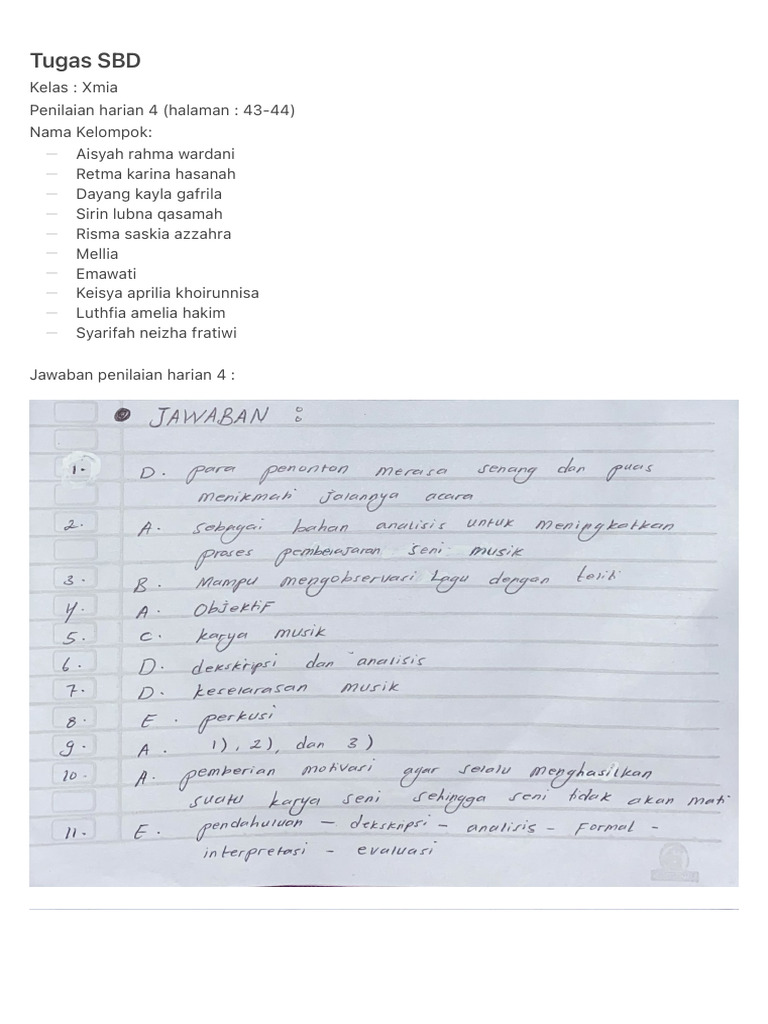 Tugas SBD
Kelas : Xmia
Penilaian harian 4 (halaman : 43-44)
Nama Kelompok:
— Aisyah rahma wardani
— Retma karina hasanah
— Dayang kayla gafrila
— Sirin lubna qasamah
— Risma saskia azzahra
— Mellia
— Emawati
— Keisya aprilia khoirunnisa
— Luthfia amelia hakim
— Syarifah neizha fratiwi
Jawaban penilaian harian 4 :
● JAWABAN :
1. D. para penonton merasa senang dan puas
menikmati jalannya acara
2. A. sebagai bahan analisis untuk meningkatkan
proses pembelajaran seni musik
3. B. Mampu mengobservasi Lagu dengan teliti
4. A. Objektif
5. C. karya musik
6. D. dekskripsi dan analisis
7. D. keselarasan musik
8. E. perkusi
9. A. 1), 2), dan 3)
10. A. pemberian motivasi agar selalu menghasilkan
suatu karya seni sehingga seni tidak akan mati
11. E. pendahuluan – dekskripsi – analisis – Formal –
interpretasi – evaluasi